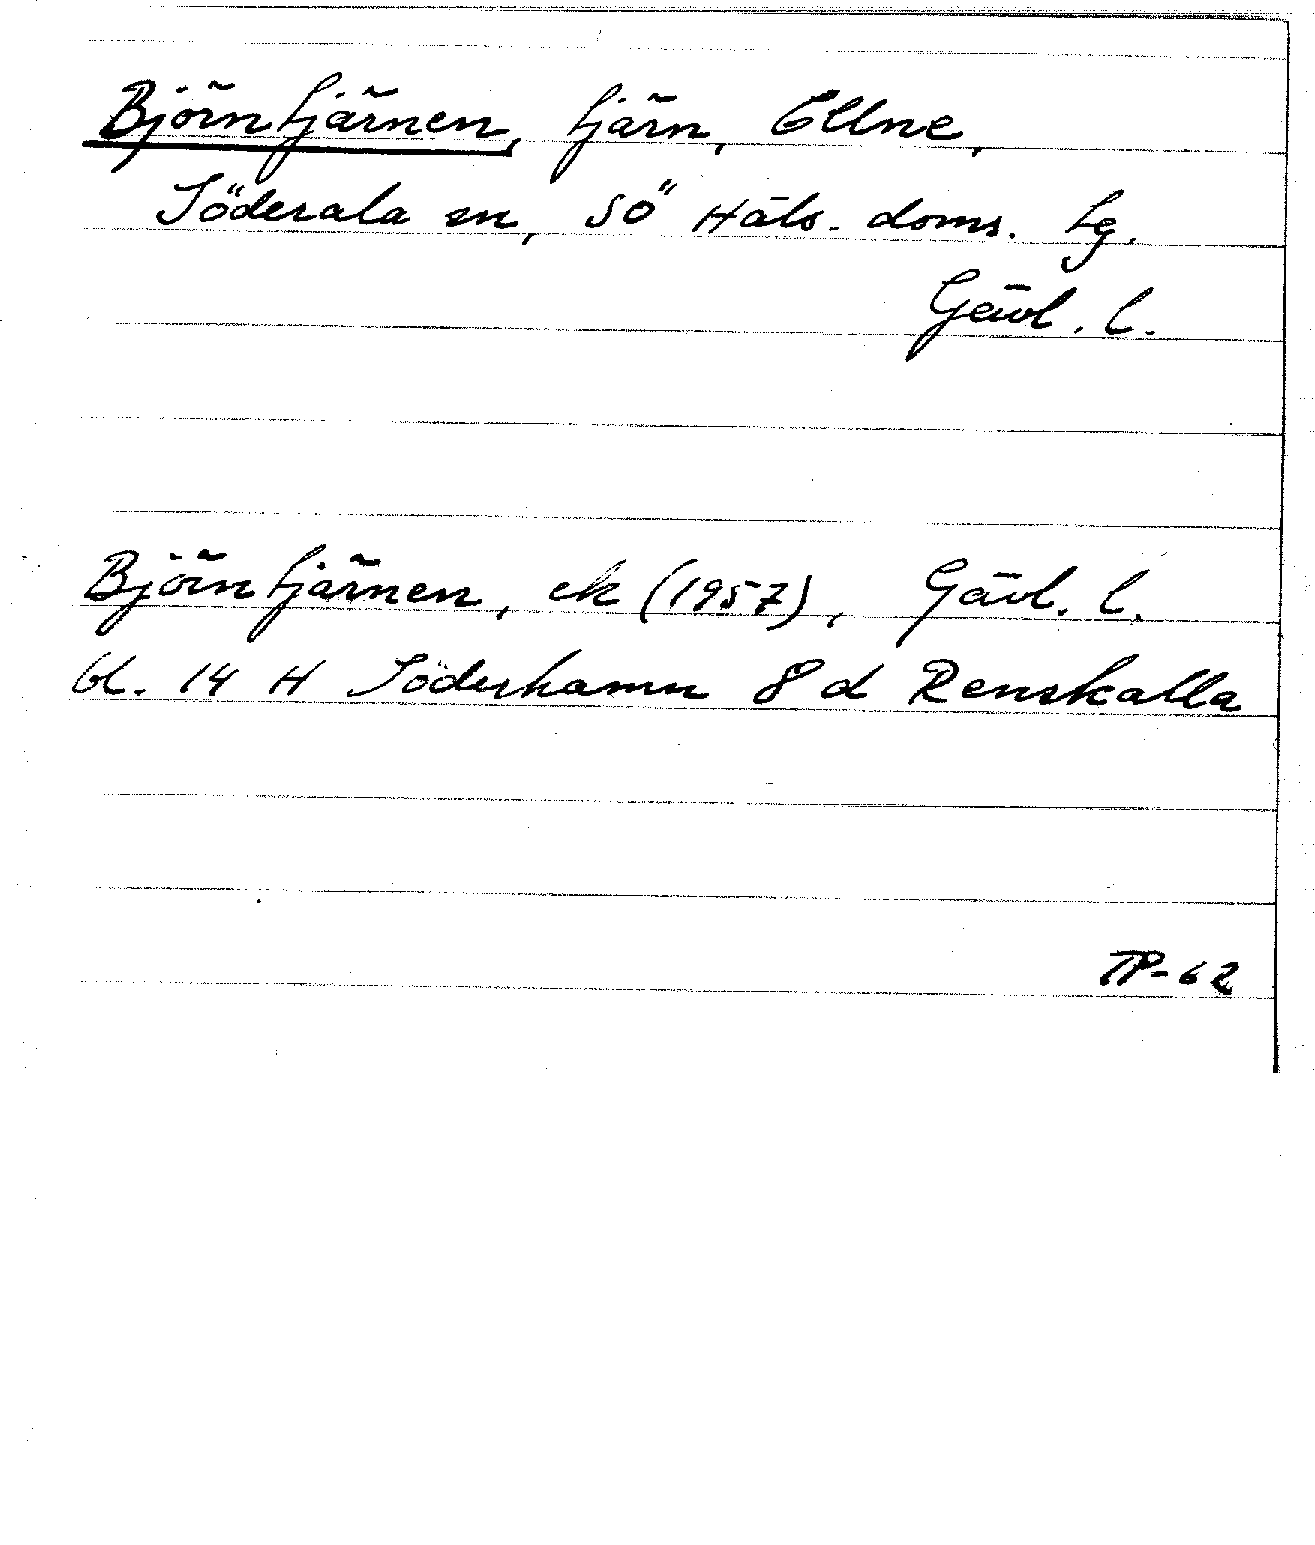 Björntjärnen, tjärn, Ellne,
Söderala sn, SÖ Häls. doms. tg.
Gävl. l.
Björntjärnen, ek (1957), Gävl. l.
bl. 14 H Söderhamn 8 d Renskalla
TP-62